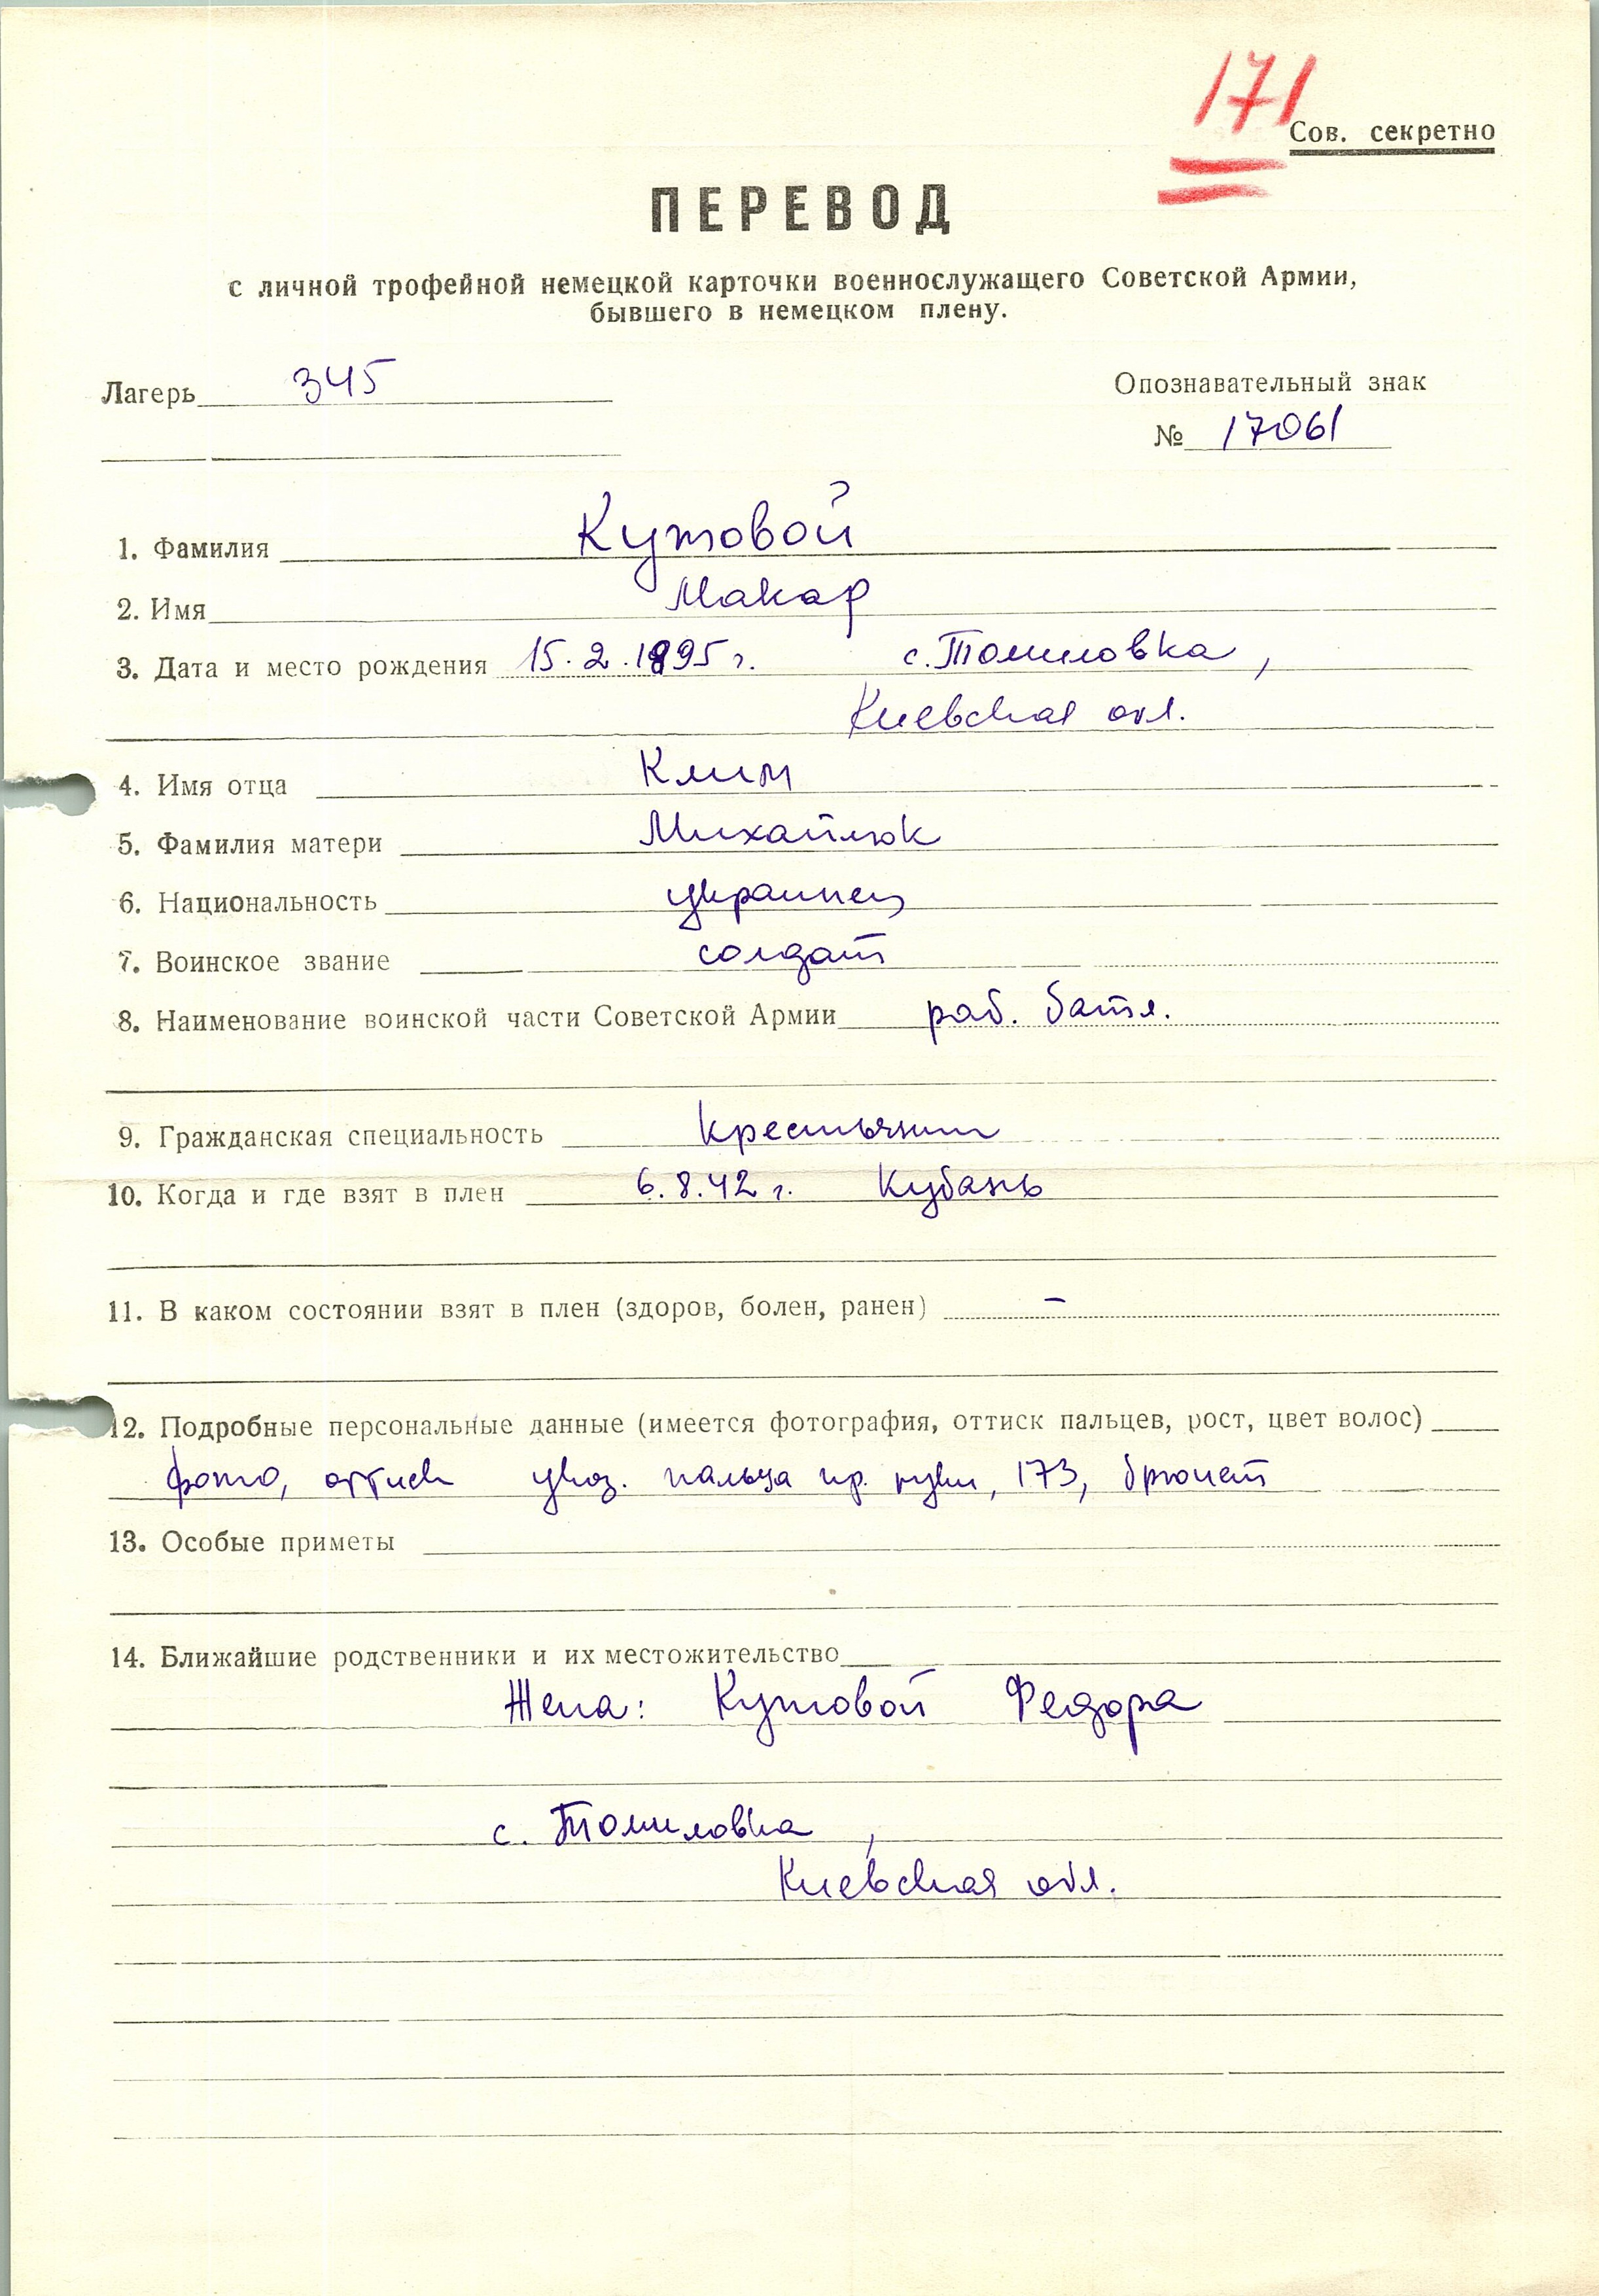 171
Сов. секретно
ПЕРЕВОД
с личной трофейной немецкой карточки военнослужащего Советской Армии,
бывшего в немецком плену.
Лагерь 345
Опознавательный знак
№ 17061
1. Фамилия Кутовой
2. Имя Макар
3. Дата и место рождения 15.2.1895 г. с. Томиловка,
Киевская обл.
4. Имя отца Клим
5. Фамилия матери Михайлюк
6. Национальность украинец
7. Воинское звание солдат
8. Наименование воинской части Советской Армии раб. батл.
9. Гражданская специальность крестьянин
10. Когда и где взят в плен 6.8.42 г. Кубань
11. В каком состоянии взят в плен (здоров, болен, ранен) –
12. Подробные персональные данные (имеется фотография, оттиск пальцев, рост, цвет волос)
фото, оттиск указ. пальца пр. руки, 173, брюнет
13. Особые приметы
14. Ближайшие родственники и их местожительство
Жена: Кутовой Федора
с. Томиловка,
Киевская обл.